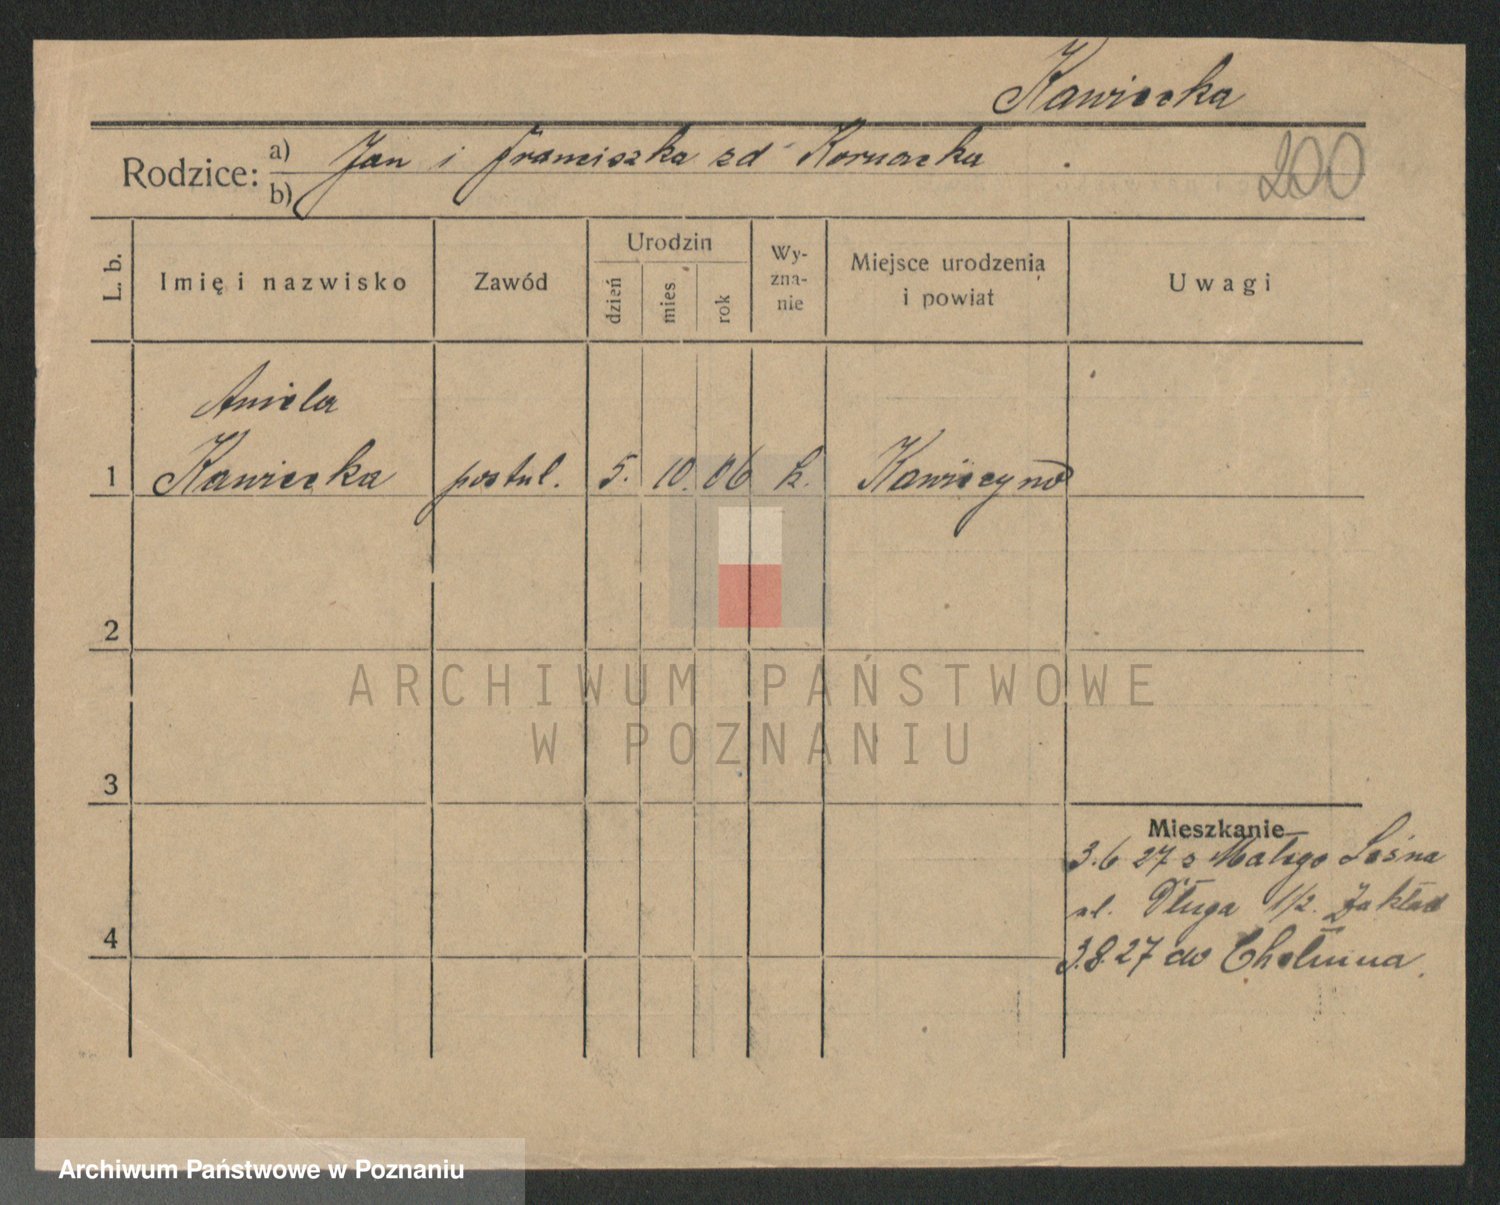 Kawiecka
Rodzice: a) Jan i Franciszka zd Kornacka
b)
200
L. b.
Imię i nazwisko
Zawód
Urodzin
dzień
mies.
rok
Wy-
zna-
nie
Miejsce urodzenia
i powiat
Uwagi
Aniela
1 Kawiecka postul. 5. 10. 06 k. Kawieczyno
2
ARCHIWUM PAŃSTWOWE
W POZNANIU
3
Mieszkanie
3.6 27 z Małego Leśna
ul. Długa 1/2. Zakład
4
3.8.27 do Chełmna.
Archiwum Państwowe w Poznaniu